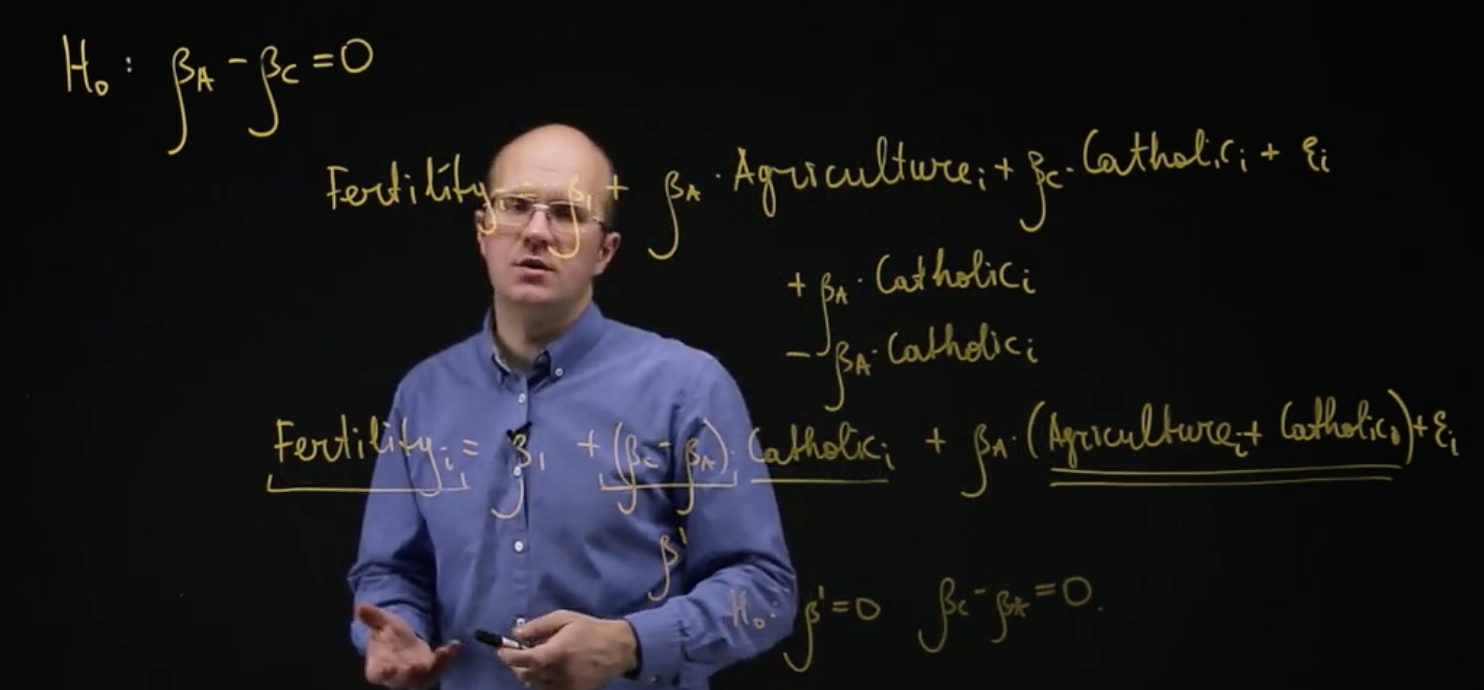 H₀: β_A - β_C = 0
Fertility_i = β_1 + β_A · Agriculture_i + β_C · Catholic_i + ε_i
+ β_A · Catholic_i
- β_A · Catholic_i
Fertility_i = β_1 + (β_C - β_A) · Catholic_i + β_A · (Agriculture_i + Catholic_i) + ε_i
β'
H₀: β' = 0 β_C - β_A = 0.